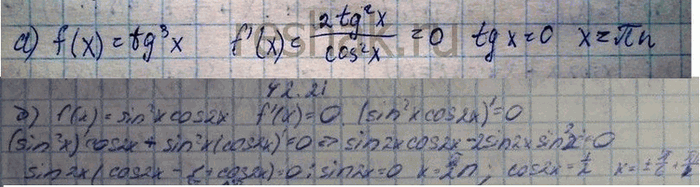 а) f(x) = tg³x f'(x) = 2tg²x/cos²x = 0 tgx=0 x=πn
42.21
б) f(x) = sin²xcos2x f'(x)=0 (sin²xcos2x)'=0
(sin²x)'cos2x + sin²x(cos2x)'=0 => sin2xcos2x-2sin2xsin²x=0
sin2x(cos2x - + cos2x)=0; sin2x=0 x=π/2n; cos2x=1/2